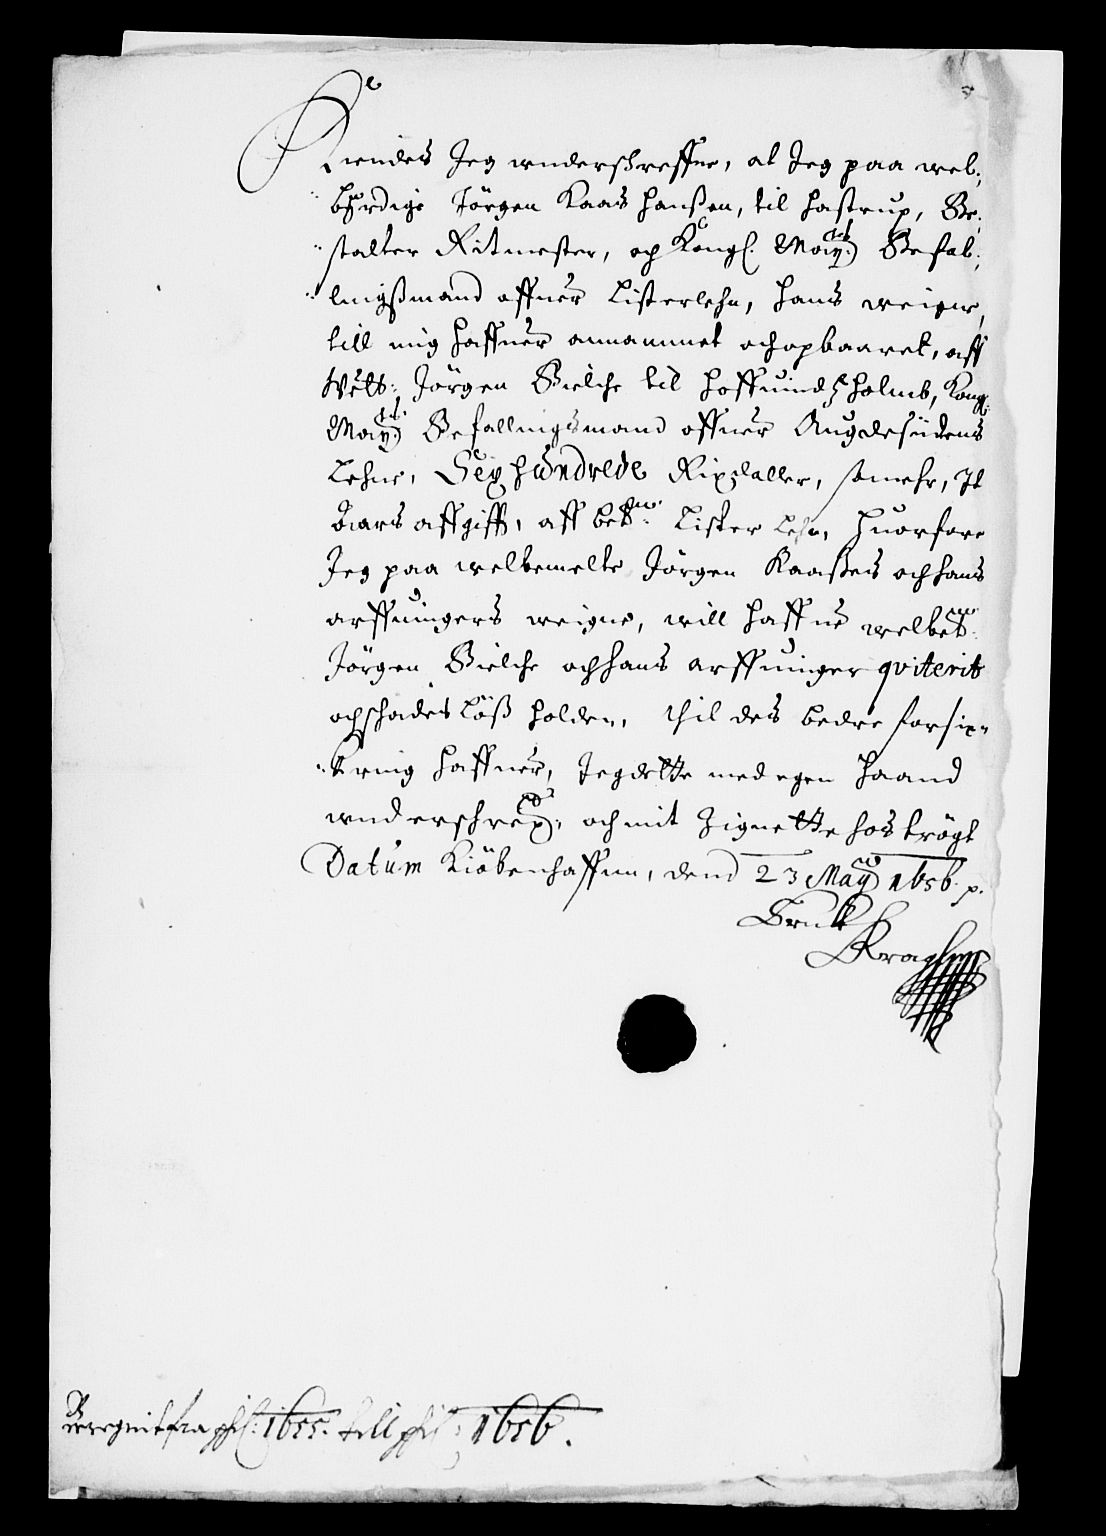 Kiendes Jeg wnderschreffne, at Jeg paa wel,,
byrdige Jörgen Kaas Hanßen, til Hastrup, Be,,
,,stalter Ritmester, och Kongl. May:tt Befal,,
,,lingßmand offuer Listerlehn, hans weigne,
till mig haffuer annammet och opbaaret, aff
Welb: Jörgen Bielche til Hoffuindzholmb, Kongl:
May:tt Befallingsmand offuer Augdesiidens
Lehne, Sex hundrede Rixdaller, som ehr, It
Aars affgifft, aff bete: Lister Lehn, Huorfore
Jeg paa welbemelte Jörgen Kaaßes och hans
arffuingers weigne, will haffue welbete:
Jörgen Bielche och hans arffuinger qviterit
och schadesLöß holden, thil des bedre forsix,,
,,kring haffuer, Jeg dette med egen Haand
wnderschreffuet, och mit Zignette hos trögt
Datum Kiöbenhaffuen, dend 23 May 1656. p.
Truls
Kraghn
Beregnit fra phil: 1655. till phil: 1656.